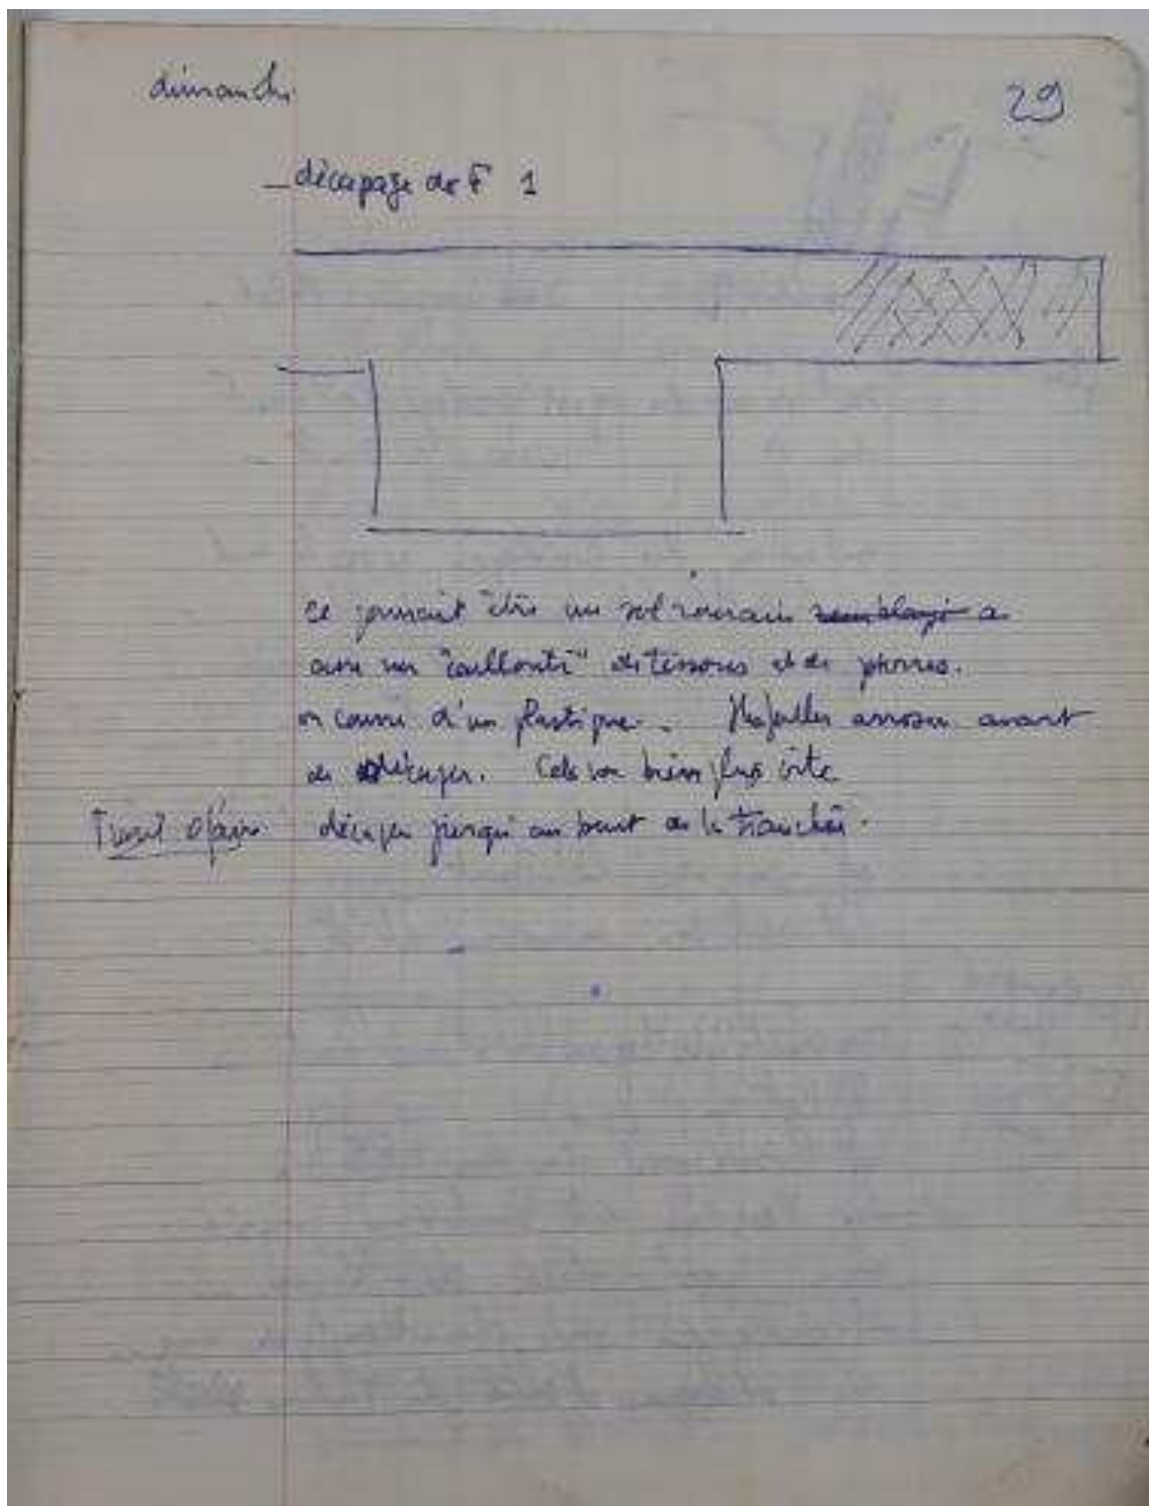 dimanche
29
_ décapage de F 1
ce pourrait être un sol romain remblayé a
avec un "caillouté" de tessons et de pierres.
on couvre d'un plastique. arroser avant
de décaper. Cela va bien plus vite
Travail à faire décaper jusqu'au bout de la tranchée.